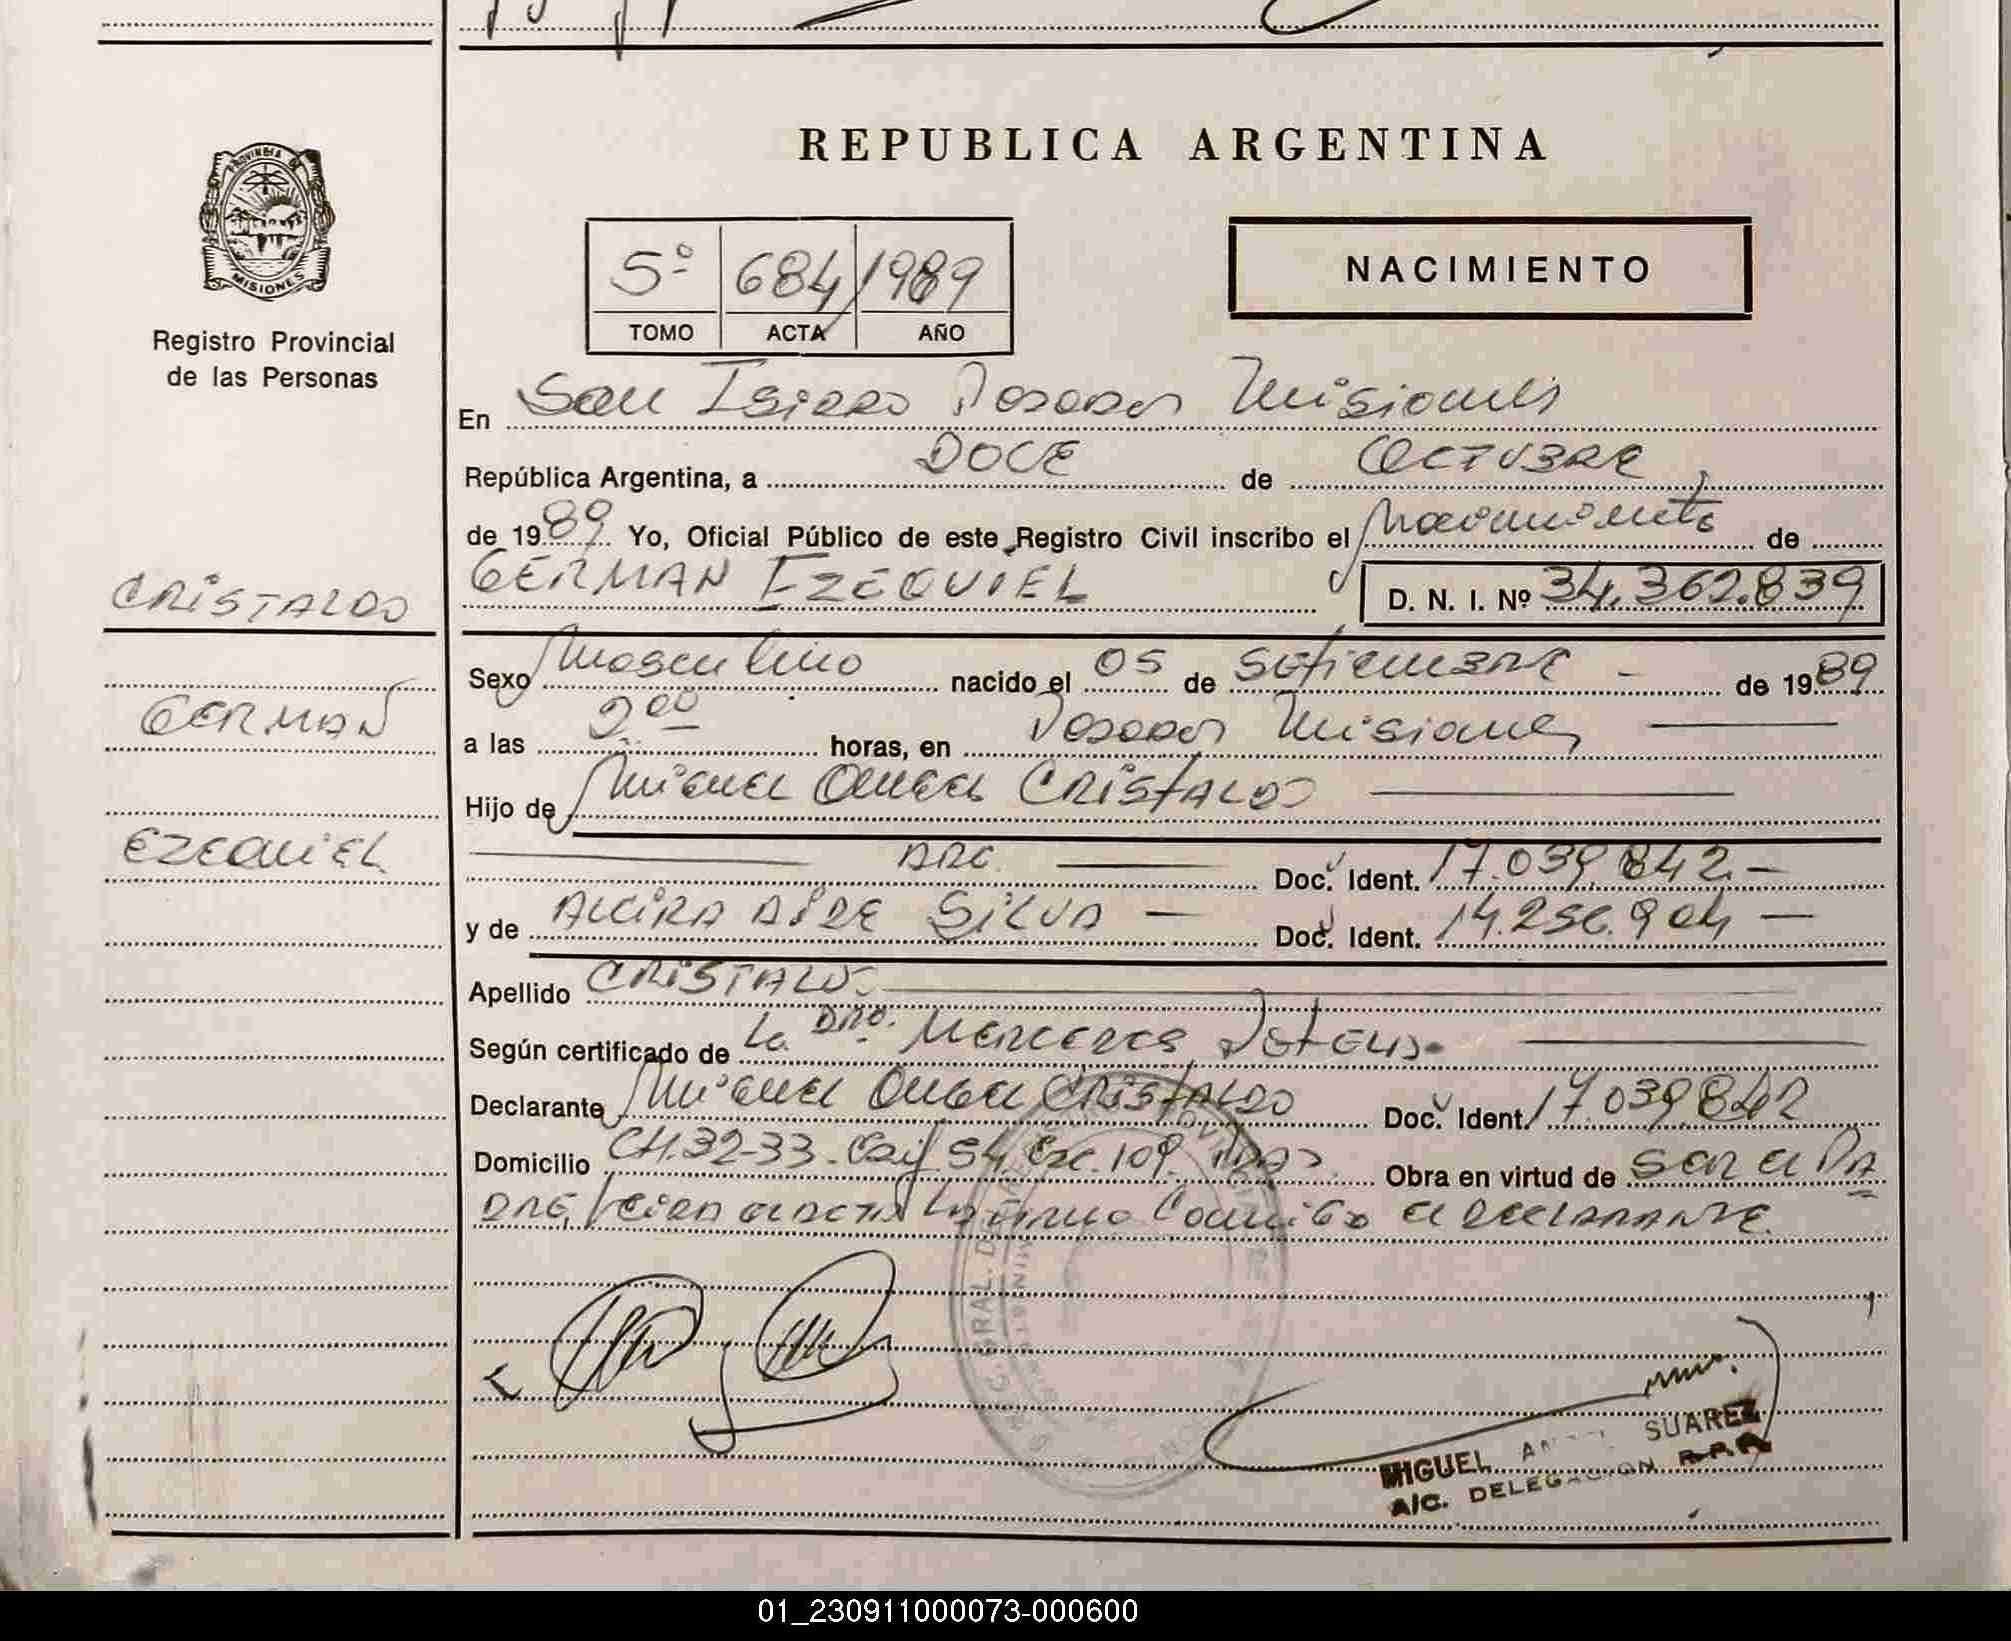 REPUBLICA ARGENTINA
PROVINCIA DE
MISIONES
Registro Provincial
de las Personas
5º 684 1989
TOMO ACTA AÑO
NACIMIENTO
En San Isidro Posadas Misiones
República Argentina, a DOCE de OCTUBRE
de 1989 Yo, Oficial Público de este Registro Civil inscribo el Nacimiento de
GERMAN EZEQUIEL
D. N. I. Nº 34.362.839
CRISTALDO
GERMAN
EZEQUIEL
Sexo Masculino nacido el 05 de SETIEMBRE - de 1989
a las 2.00 horas, en Posadas Misiones
Hijo de Miguel Angel CRISTALDO
ARG. Doc. Ident. 17.039.842.-
y de ALCIRA AIDE SILVA - Doc. Ident. 14.256.904 -
Apellido CRISTALDO.
Según certificado de La Dra. MERCEDES
Declarante Miguel Angel CRISTALDO Doc. Ident. 17.039.842
Domicilio CH.32-33. Edif. 54 Esc. 109. Obra en virtud de SER el PA
DRE, leida el ACTA la firma Conmigo el DECLARANTE.
MIGUEL SUAREZ
A/C. DELEGACION R.P.P.
01_230911000073-000600